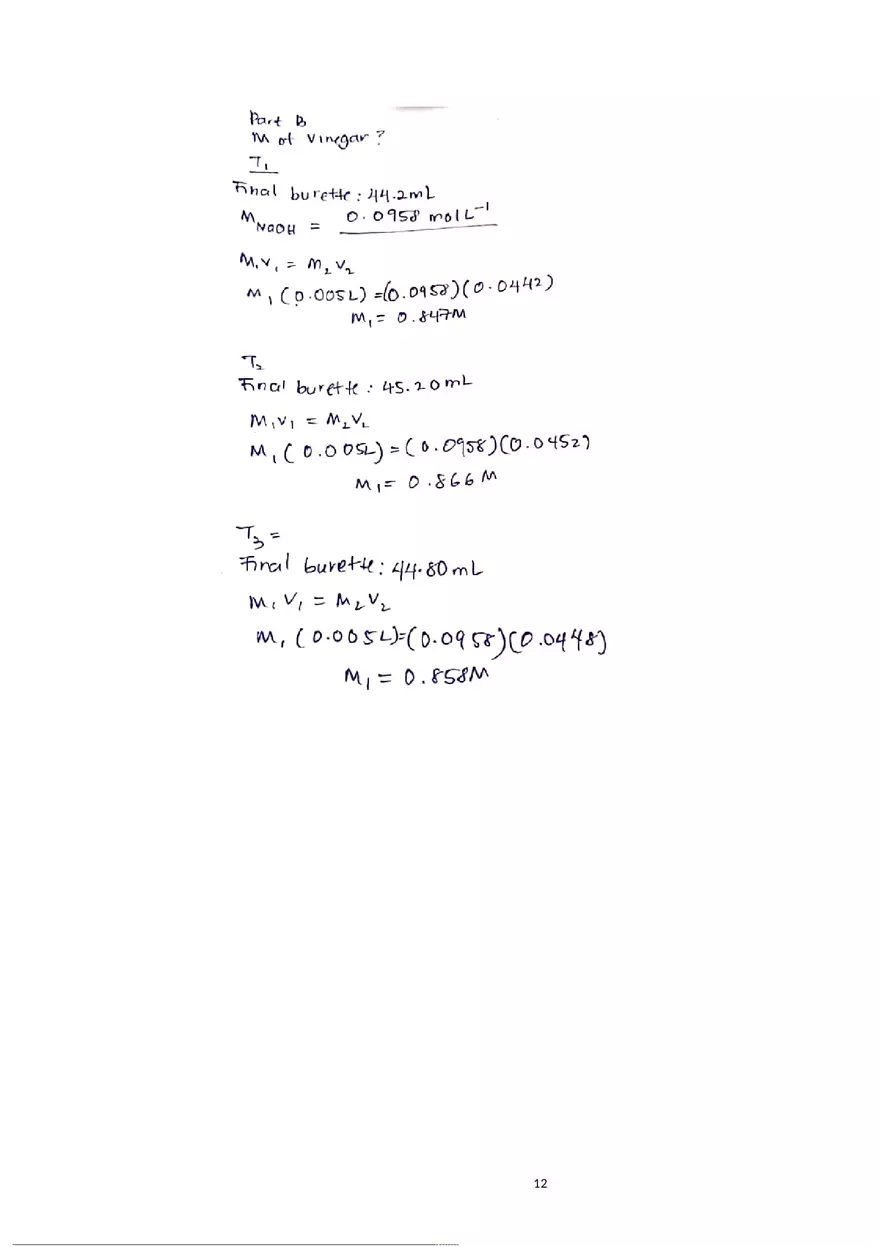 Part B
M of vinegar?
T₁
Final burette: 44.2mL
M NaOH = 0.0958 mol L⁻¹
M₁V₁ = M₂V₂
M₁ (0.005L) =(0.0958)(0.0442)
M₁ = 0.847M
T₂
Final burette : 45.20mL
M₁V₁ = M₂V₂
M₁ (0.005L) = (0.0958)(0.0452)
M₁= 0.866 M
T₃ =
Final burette: 44.80mL
M₁V₁ = M₂V₂
M₁ (0.005L)=(0.0958)(0.0448)
M₁ = 0.858M
12